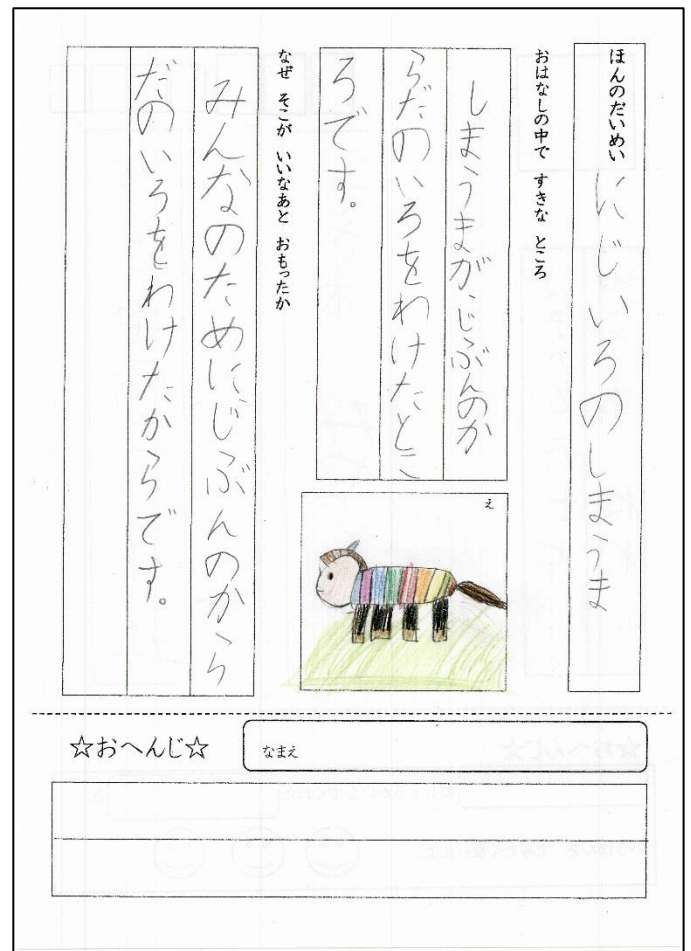 ほんのだいめい にじいろのしまうま
おはなしの中で すきな ところ
しまうまが、じぶんのか
らだのいろをわけたとこ
ろです。
え
なぜ そこが いいなあと おもったか
みんなのためにじぶんのから
だのいろをわけたからです。
☆おへんじ☆
なまえ